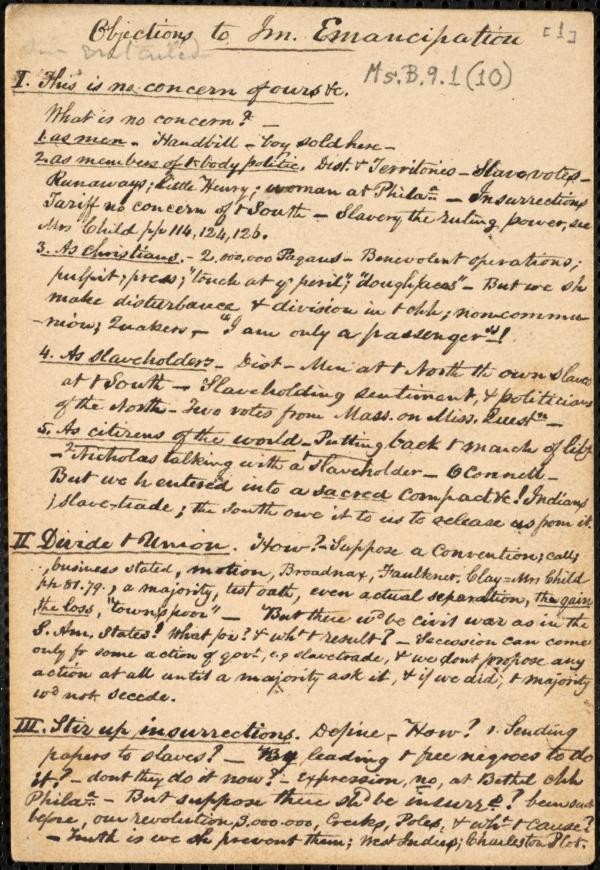 Objections to Im. Emancipation [1]
Ms. B. 9. 1 (10)
I. This is no concern of ours &c.
What is no concern? —
1. as men - Handbill - boy sold here -
2. as members of t body politic. Dist. & Territories - Slave votes -
Runaways; little Henry; woman at Phila - Insurrections
Tariff no concern of t South - Slavery the ruling power, see
Mrs Child pp 114, 124, 126.
3. As Christians. - 2,000,000 Pagans - Benevolent operations;
pulpit; press; "touch at yr peril"; "doughfaces" - But we sh
make disturbance & division in t chh; non-commu-
-nion; Quakers - "I am only a passenger"!
4. As slaveholders - Dist - Men at t North tho own slaves
at t South - Slaveholding sentiment, & politicians
of the North - Two votes from Mass. on Miss. Quest -
5. As citizens of the world - Putting back t march of lib
- Nicholas talking with a slaveholder - O'Connell -
But we h entered into a sacred compact &c! Indians
slave-trade; the South owe it to us to release us from it.
II Divide t Union. How? - Suppose a Convention; call;
business stated, motion, Broadnax, Faulkner, Clay - Mrs Child
pp 81.79., a majority, test oath, even actual separation, the gain
the loss, "town's poor" - But there wd be civil war as in the
S. Am. States! What for? & wht t result? - Secession can come
only for some action of govt, e.g slavetrade, & we dont propose any
action at all until a majority ask it, & if we did, t majority
wd not secede.
III. Stir up insurrections. Define - How? 1. Sending
papers to slaves? - By leading t free negroes to do
it? - dont they do it now? - Expression, no, at Bethel chh
Phila - But suppose there shd be insurr? been such
before, our revolution, 3,000,000, Greeks, Poles, & wht t cause?
- Truth is we sh prevent them; West Indies; Charleston Plot.